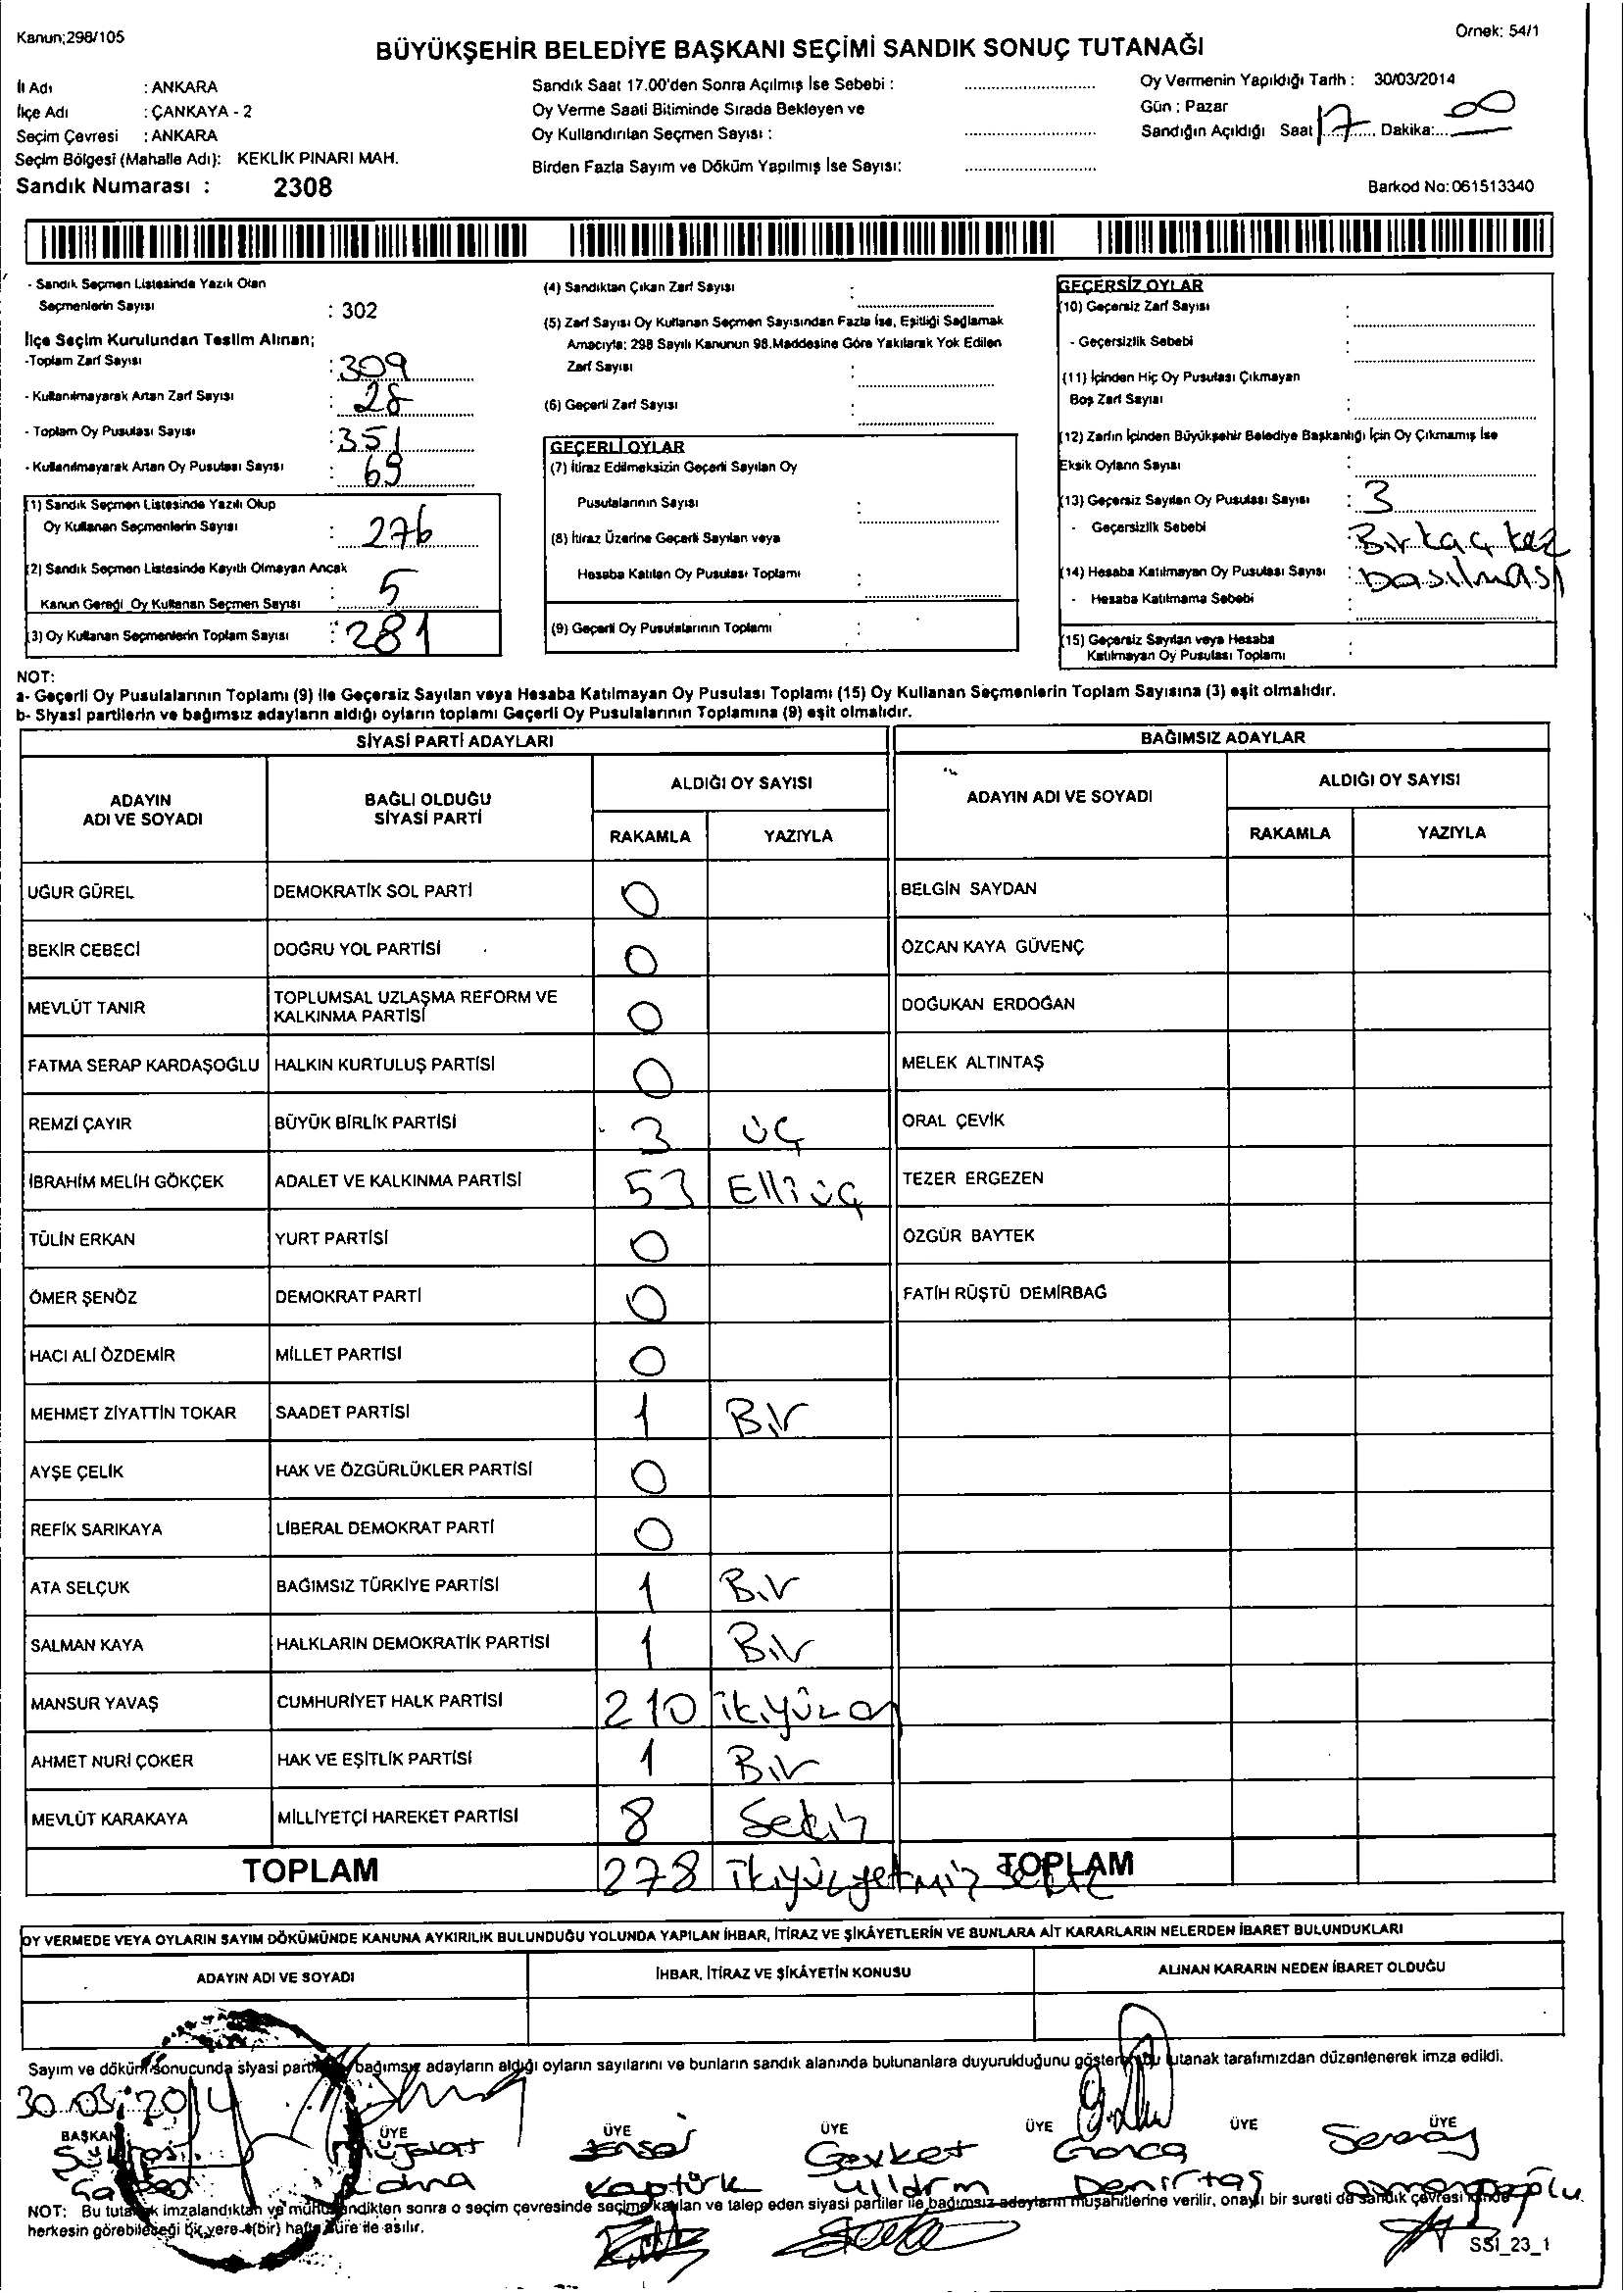 Kanun;298/105
Örnek: 54/1
BÜYÜKŞEHİR BELEDİYE BAŞKANI SEÇİMİ SANDIK SONUÇ TUTANAĞI
İl Adı : ANKARA
İlçe Adı : ÇANKAYA - 2
Seçim Çevresi : ANKARA
Seçim Bölgesi (Mahalle Adı): KEKLİK PINARI MAH.
Sandık Numarası : 2308
Sandık Saat 17.00'den Sonra Açılmış İse Sebebi :
Oy Verme Saati Bitiminde Sırada Bekleyen ve
Oy Kullandırılan Seçmen Sayısı :
Birden Fazla Sayım ve Döküm Yapılmış İse Sayısı:
Oy Vermenin Yapıldığı Tarih : 30/03/2014
Gün : Pazar
Sandığın Açıldığı Saat 17 Dakika: 00
Barkod No:061513340
- Sandık Seçmen Listesinde Yazılı Olan
Seçmenlerin Sayısı : 302
İlçe Seçim Kurulundan Teslim Alınan;
-Toplam Zarf Sayısı : 309
- Kullanılmayarak Artan Zarf Sayısı : 28
- Toplam Oy Pusulası Sayısı : 351
- Kullanılmayarak Artan Oy Pusulası Sayısı : 69
(1) Sandık Seçmen Listesinde Yazılı Olup
Oy Kullanan Seçmenlerin Sayısı : 276
(2) Sandık Seçmen Listesinde Kayıtlı Olmayan Ancak
Kanun Gereği Oy Kullanan Seçmen Sayısı : 5
(3) Oy Kullanan Seçmenlerin Toplam Sayısı : 281
(4) Sandıktan Çıkan Zarf Sayısı :
(5) Zarf Sayısı Oy Kullanan Seçmen Sayısından Fazla İse, Eşitliği Sağlamak
Amacıyla; 298 Sayılı Kanunun 98.Maddesine Göre Yakılarak Yok Edilen
Zarf Sayısı :
(6) Geçerli Zarf Sayısı :
GEÇERLİ OYLAR
(7) İtiraz Edilmeksizin Geçerli Sayılan Oy
Pusulalarının Sayısı :
(8) İtiraz Üzerine Geçerli Sayılan veya
Hesaba Katılan Oy Pusulası Toplamı :
(9) Geçerli Oy Pusulalarının Toplamı :
GEÇERSİZ OYLAR
(10) Geçersiz Zarf Sayısı :
- Geçersizlik Sebebi :
(11) İçinden Hiç Oy Pusulası Çıkmayan
Boş Zarf Sayısı :
(12) Zarfın İçinden Büyükşehir Belediye Başkanlığı İçin Oy Çıkmamış İse
Eksik Oyların Sayısı :
(13) Geçersiz Sayılan Oy Pusulası Sayısı : 3
- Geçersizlik Sebebi Birkaç kez
(14) Hesaba Katılmayan Oy Pusulası Sayısı : basılması
- Hesaba Katılmama Sebebi :
(15) Geçersiz Sayılan veya Hesaba
Katılmayan Oy Pusulası Toplamı :
NOT:
a- Geçerli Oy Pusulalarının Toplamı (9) ile Geçersiz Sayılan veya Hesaba Katılmayan Oy Pusulası Toplamı (15) Oy Kullanan Seçmenlerin Toplam Sayısına (3) eşit olmalıdır.
b- Siyasi partilerin ve bağımsız adayların aldığı oyların toplamı Geçerli Oy Pusulalarının Toplamına (9) eşit olmalıdır.
SİYASİ PARTİ ADAYLARI
BAĞIMSIZ ADAYLAR
ADAYIN
ADI VE SOYADI
BAĞLI OLDUĞU
SİYASİ PARTİ
ALDIĞI OY SAYISI
RAKAMLA YAZIYLA
ADAYIN ADI VE SOYADI
ALDIĞI OY SAYISI
RAKAMLA YAZIYLA
UĞUR GÜREL DEMOKRATİK SOL PARTİ 0 BELGİN SAYDAN
BEKİR CEBECİ DOĞRU YOL PARTİSİ 0 ÖZCAN KAYA GÜVENÇ
MEVLÜT TANIR TOPLUMSAL UZLAŞMA REFORM VE
KALKINMA PARTİSİ 0 DOĞUKAN ERDOĞAN
FATMA SERAP KARDAŞOĞLU HALKIN KURTULUŞ PARTİSİ 0 MELEK ALTINTAŞ
REMZİ ÇAYIR BÜYÜK BİRLİK PARTİSİ 3 üç ORAL ÇEVİK
İBRAHİM MELİH GÖKÇEK ADALET VE KALKINMA PARTİSİ 53 Elli üç TEZER ERGEZEN
TÜLİN ERKAN YURT PARTİSİ 0 ÖZGÜR BAYTEK
ÖMER ŞENÖZ DEMOKRAT PARTİ 0 FATİH RÜŞTÜ DEMİRBAĞ
HACI ALİ ÖZDEMİR MİLLET PARTİSİ 0
MEHMET ZİYATTİN TOKAR SAADET PARTİSİ 1 Bir
AYŞE ÇELİK HAK VE ÖZGÜRLÜKLER PARTİSİ 0
REFİK SARIKAYA LİBERAL DEMOKRAT PARTİ 0
ATA SELÇUK BAĞIMSIZ TÜRKİYE PARTİSİ 1 Bir
SALMAN KAYA HALKLARIN DEMOKRATİK PARTİSİ 1 Bir
MANSUR YAVAŞ CUMHURİYET HALK PARTİSİ 210 ikiyüz on
AHMET NURİ ÇOKER HAK VE EŞİTLİK PARTİSİ 1 Bir
MEVLÜT KARAKAYA MİLLİYETÇİ HAREKET PARTİSİ 8 Sekiz
TOPLAM 278 ikiyüzyetmiş sekiz TOPLAM
OY VERMEDE VEYA OYLARIN SAYIM DÖKÜMÜNDE KANUNA AYKIRILIK BULUNDUĞU YOLUNDA YAPILAN İHBAR, İTİRAZ VE ŞİKÂYETLERİN VE BUNLARA AİT KARARLARIN NELERDEN İBARET BULUNDUKLARI
ADAYIN ADI VE SOYADI İHBAR, İTİRAZ VE ŞİKÂYETİN KONUSU ALINAN KARARIN NEDEN İBARET OLDUĞU
Sayım ve döküm sonucunda siyasi parti bağımsız adayların aldığı oyların sayılarını ve bunların sandık alanında bulunanlara duyurulduğunu gösteren bu tutanak tarafımızdan düzenlenerek imza edildi.
30.03.2014
BAŞKAN ÜYE ÜYE ÜYE ÜYE ÜYE ÜYE
Şevket Gonca Seray
Kaptürk Demirtaş
NOT: Bu tutanak imzalandıktan ve mühürlendikten sonra o seçim çevresinde seçime katılan ve talep eden siyasi partiler ile bağımsız adayların müşahitlerine verilir, onaylı bir sureti de sandık çevresi içinde
herkesin görebileceği bir yere 1(bir) hafta süre ile asılır.
SSI_23_1